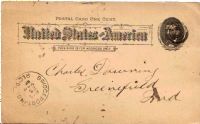 POSTAL CARD ONE CENT.
United States of America
THIS SIDE IS FOR ADDRESS ONLY.
Charles Downing
Greenfield
Ind